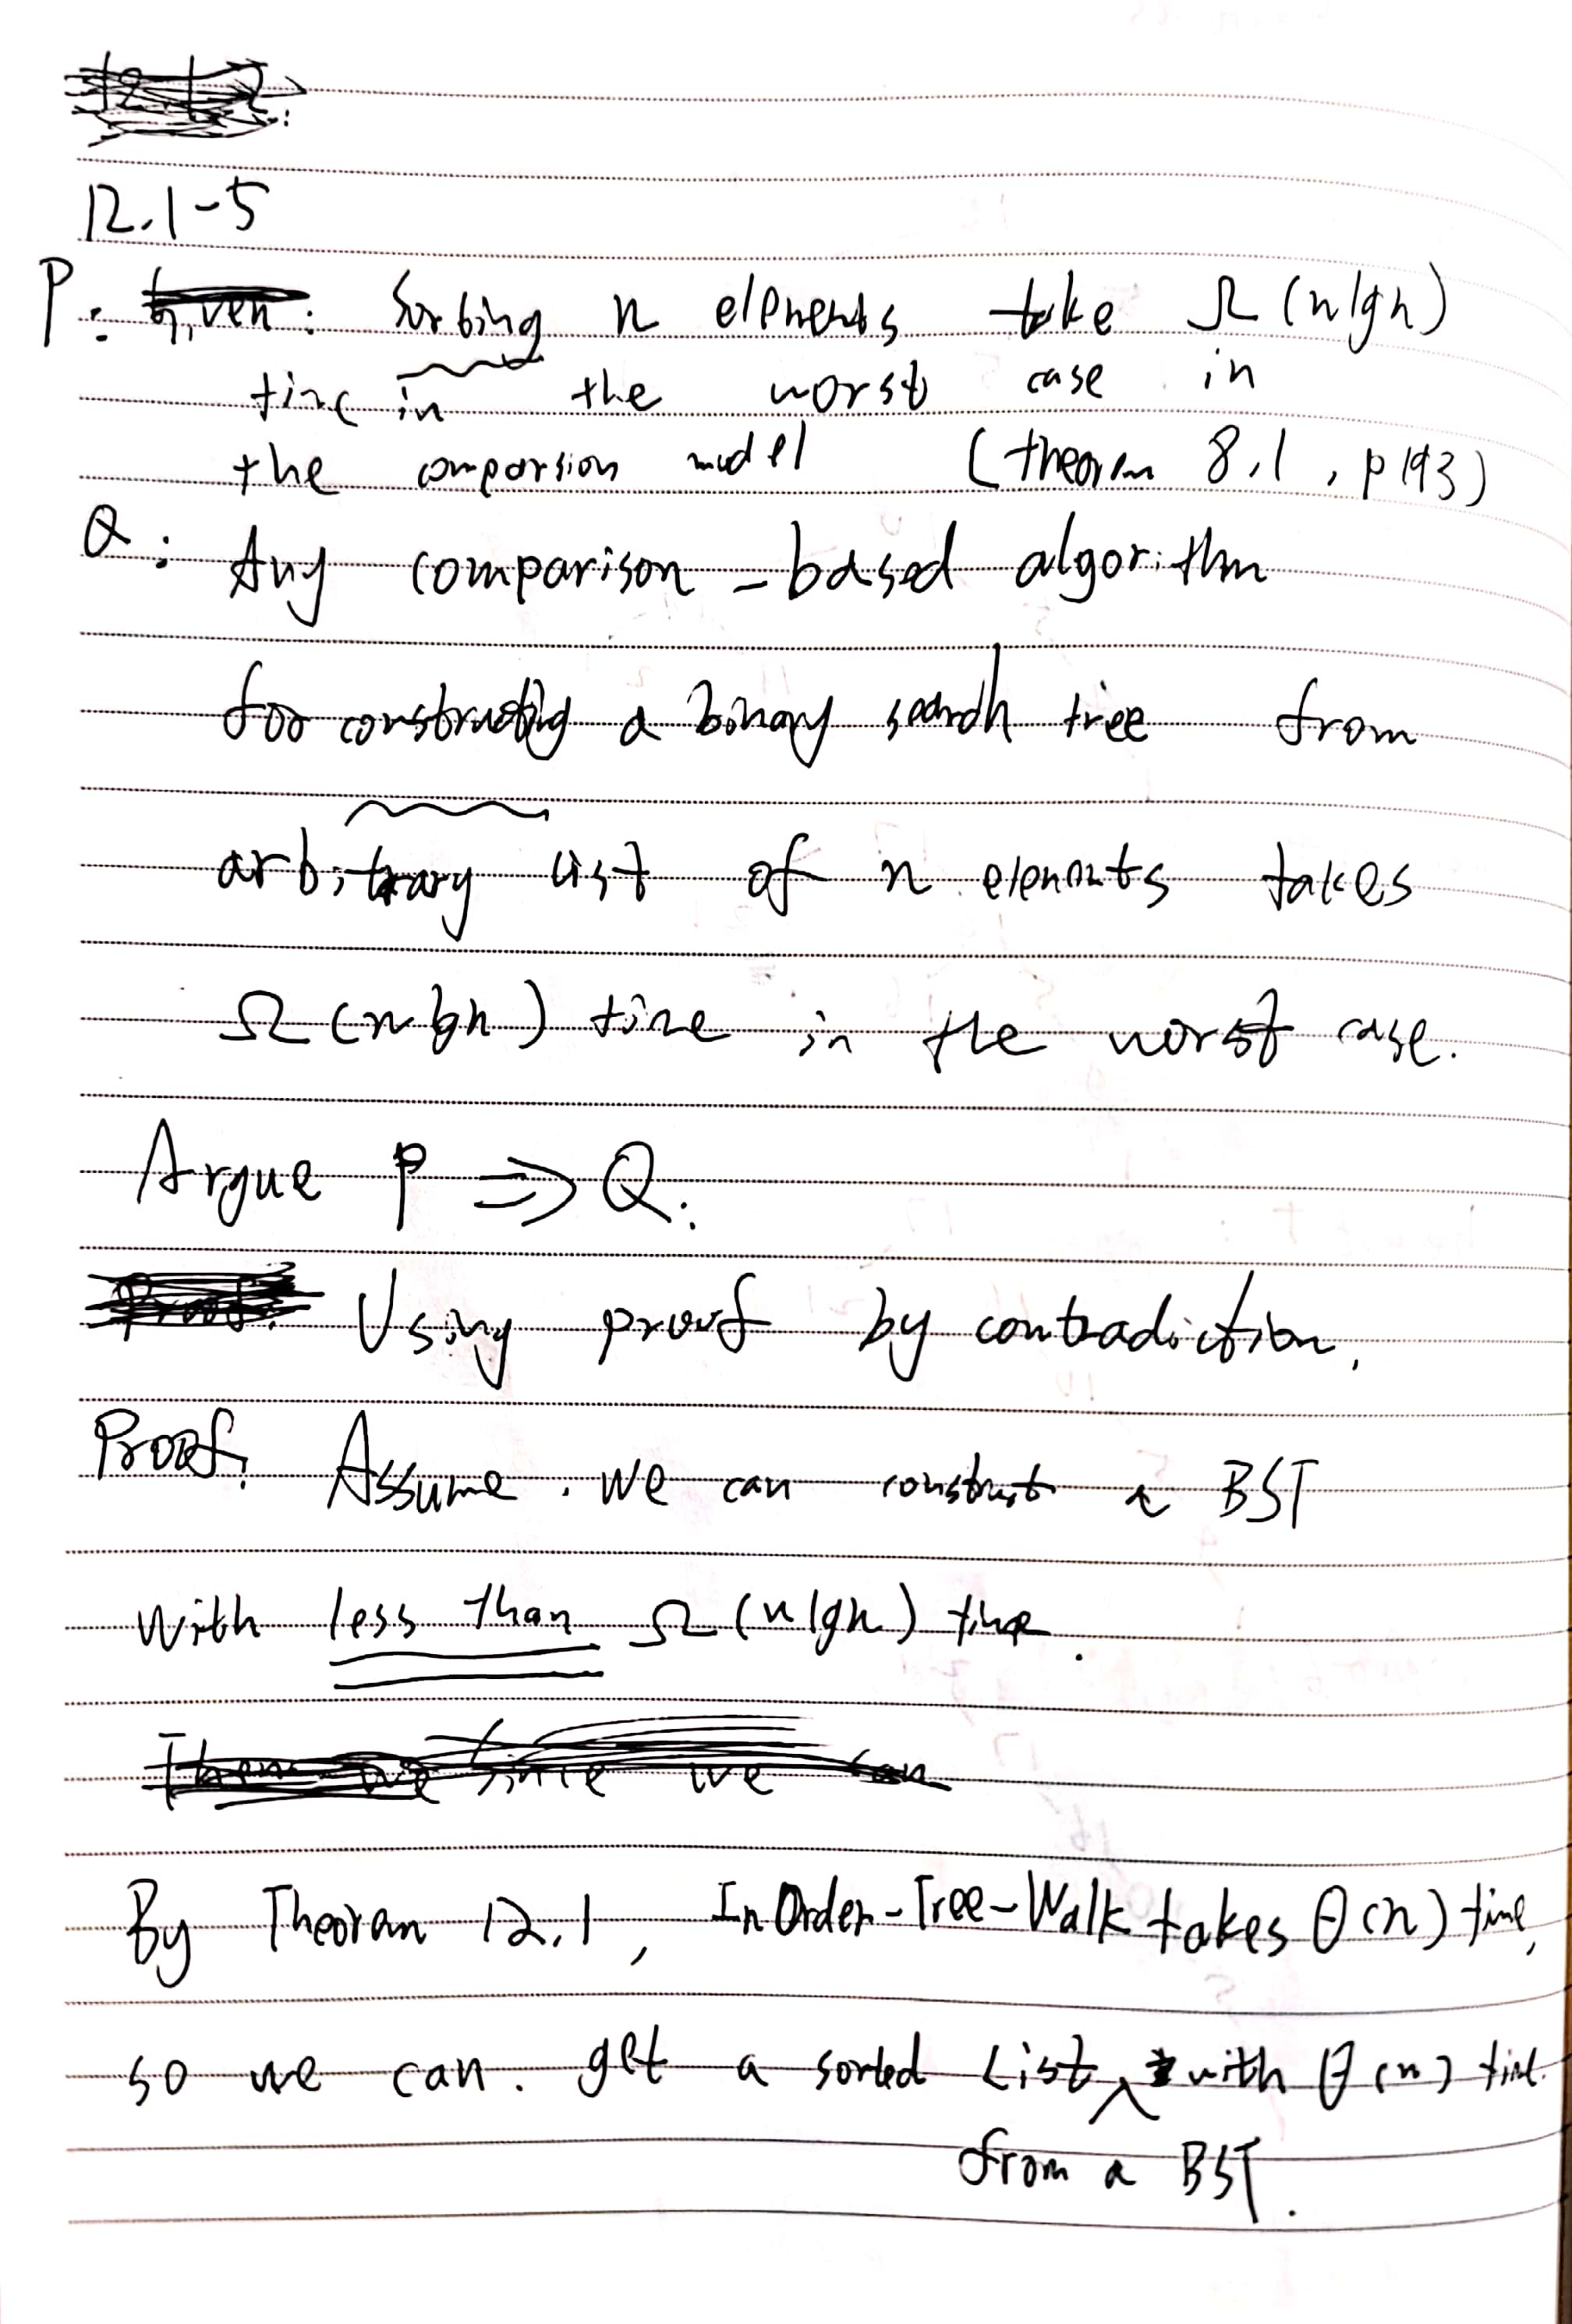 12.1-5
P: Given: Sorting n elements take Ω(nlgn)
time in the worst case in
the comparsion model (theorem 8.1, p193)
Q: Any comparison-based algorithm
for constructing a binary search tree from
arbitrary list of n elements takes
Ω(nlgn) time in the worst case.
Argue P ⇒ Q.
Proof: Using proof by contradiction.
Proof: Assume we can construct a BST
with less than Ω(nlgn) time.
Then we since we can
By Theorem 12.1, InOrder-Tree-Walk takes θ(n) time,
so we can get a sorted list with θ(n) time.
from a BST.